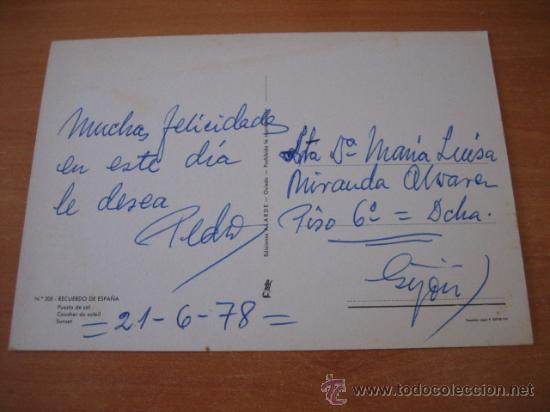 Muchas felicidades
en este día
le desea
Pedro
Nº 208 - RECUERDO DE ESPAÑA
Puesta de sol
Coucher de soleil
Sunset
= 21-6-78 =
Ediciones ALARDE - Oviedo - Prohibida la
Sta Dª María Luisa
Miranda Alvarez
Piso 6º = Dcha.
Gijón
© todocoleccion.net
http://www.todocoleccion.net